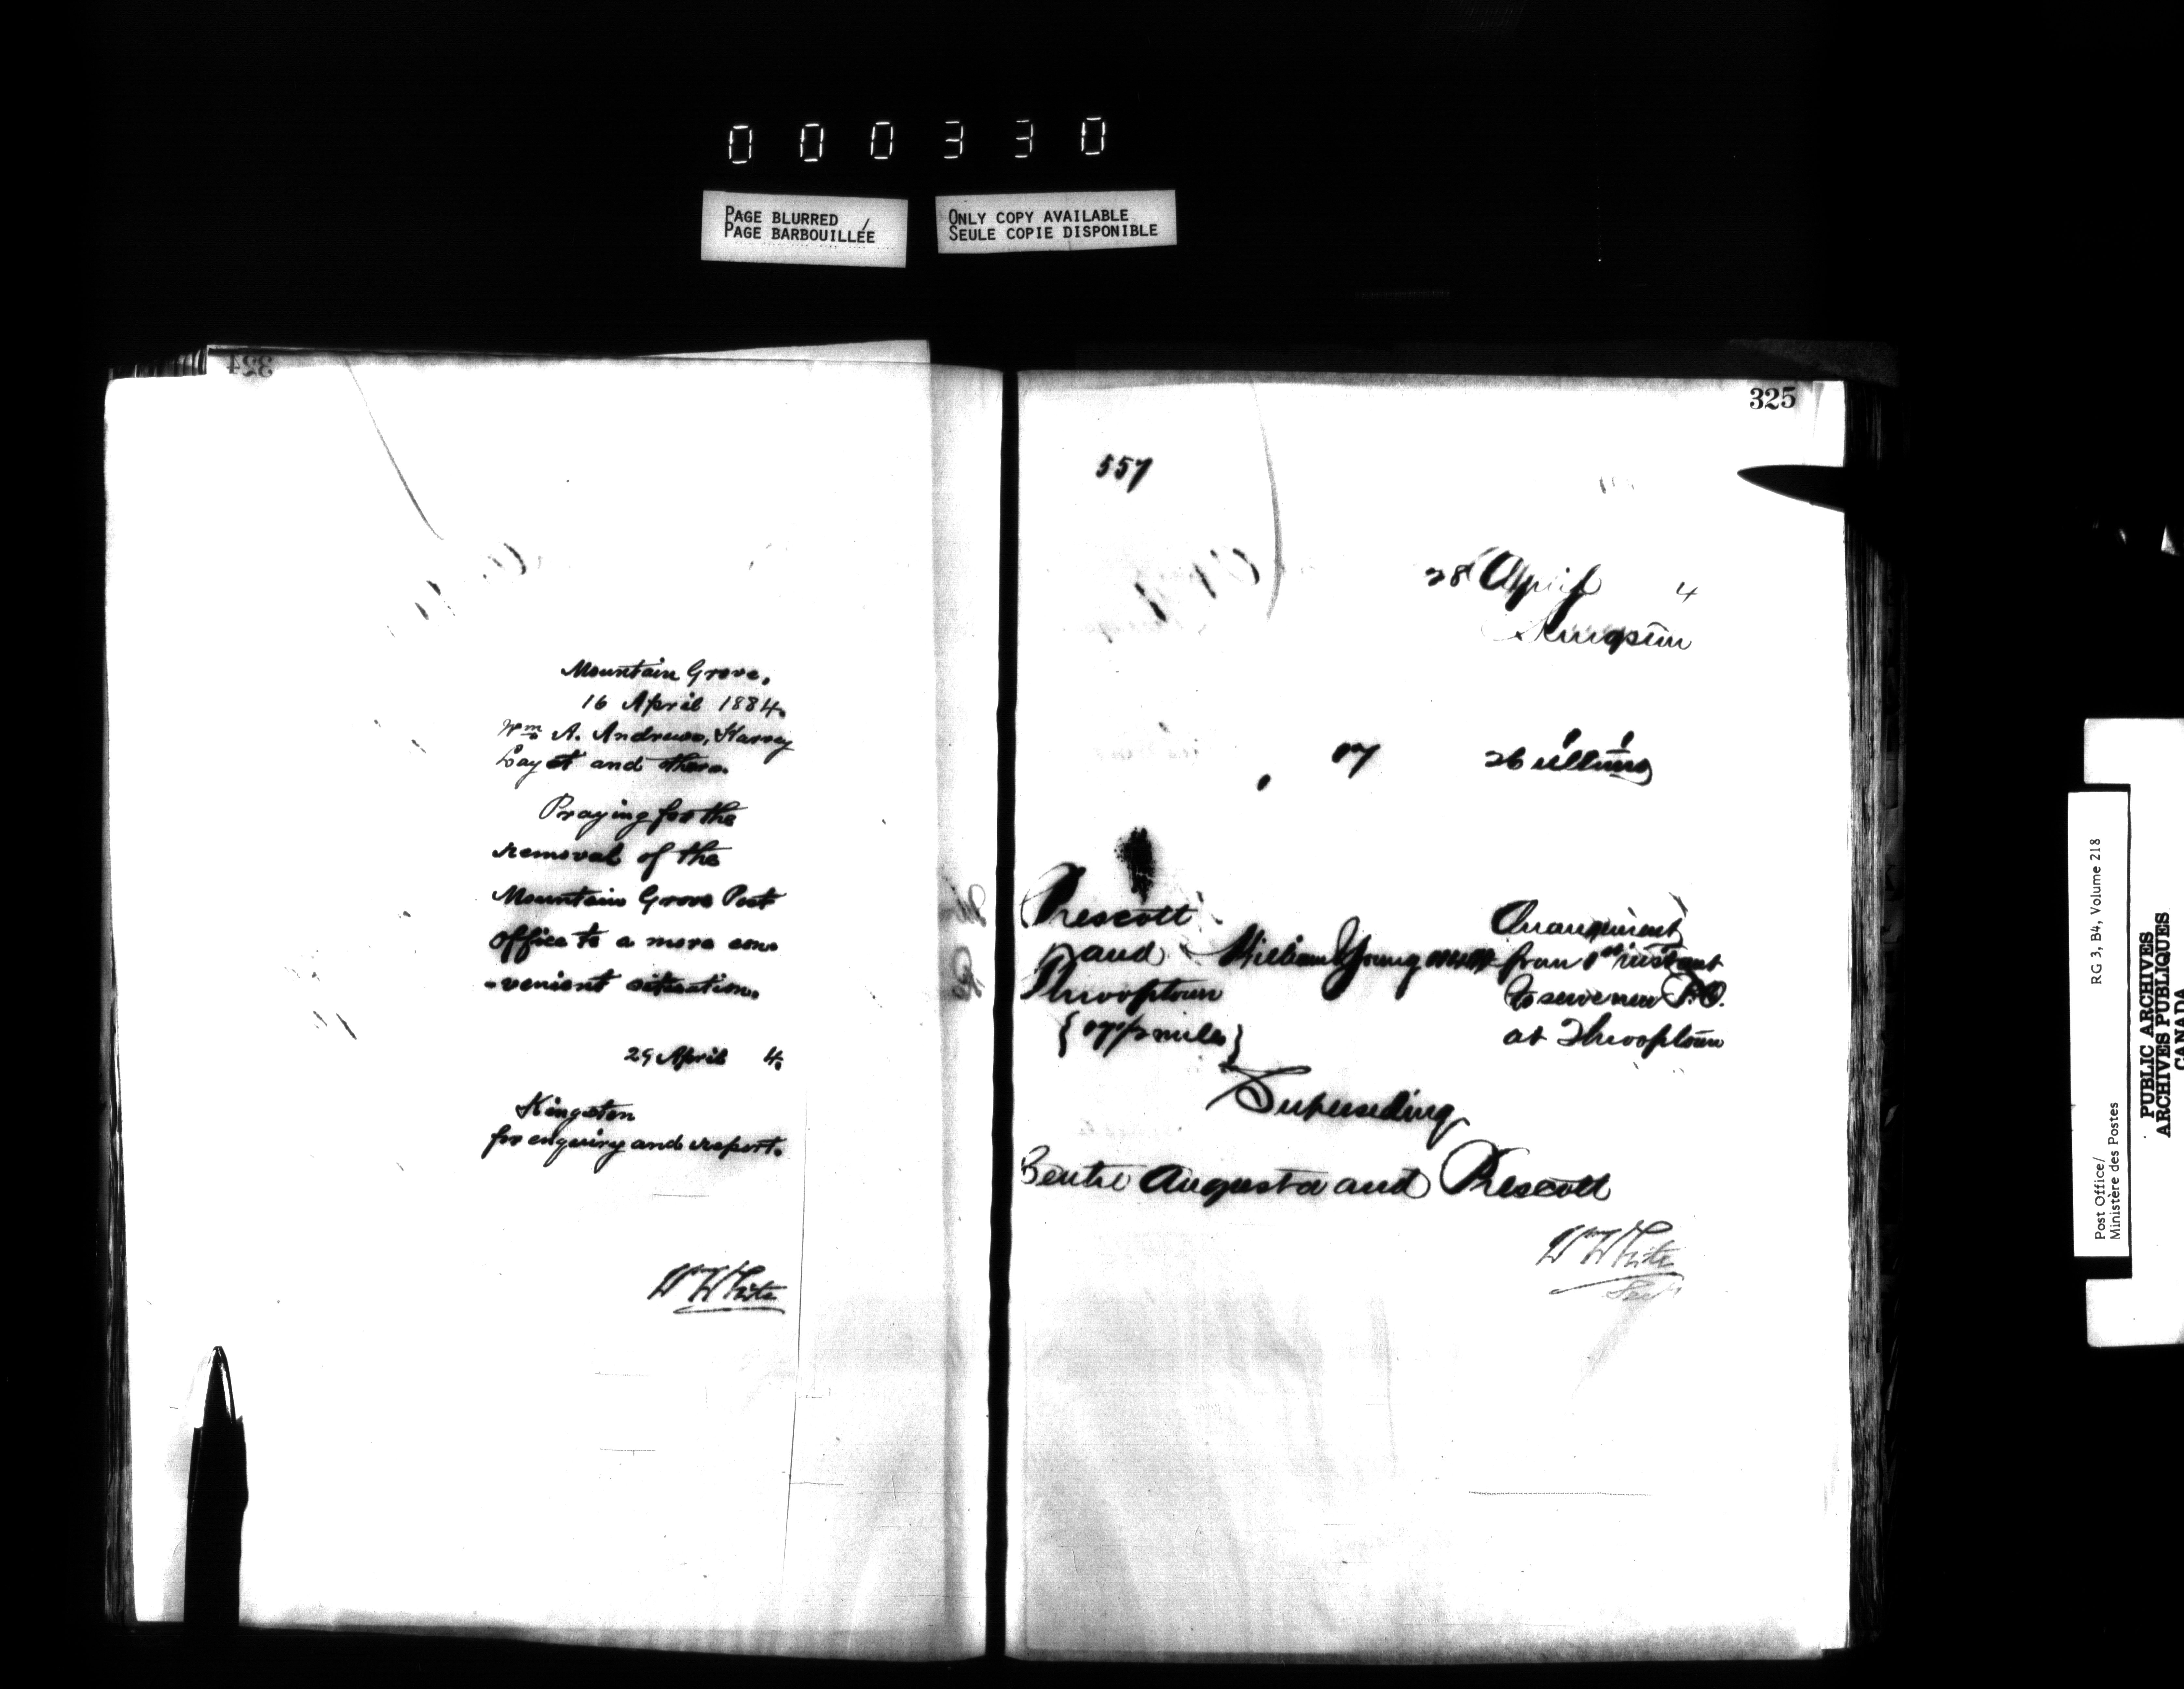 000330
PAGE BLURRED
PAGE BARBOUILLÉE
ONLY COPY AVAILABLE
SEULE COPIE DISPONIBLE
324
Mountain Grove,
16 April 1884.
Wm A. Andrews, Harvey
and others.
Praying for the
removal of the
Mountain Grove Post
office to a more con-
-venient situation.
29 April 4.
Kingston
for enquiry and report.
Wm White
325
557
28 April 4
Kingston
17
Prescott
and William Young from 1st instant
Throoptown
Arrangement
To serve new P.O.
at Throoptown
miles
Superseding
Centre Augusta and Prescott
Wm White
Secy
Post Office/
Ministère des Postes
RG 3, B4, Volume 218
PUBLIC ARCHIVES
ARCHIVES PUBLIQUES
CANADA